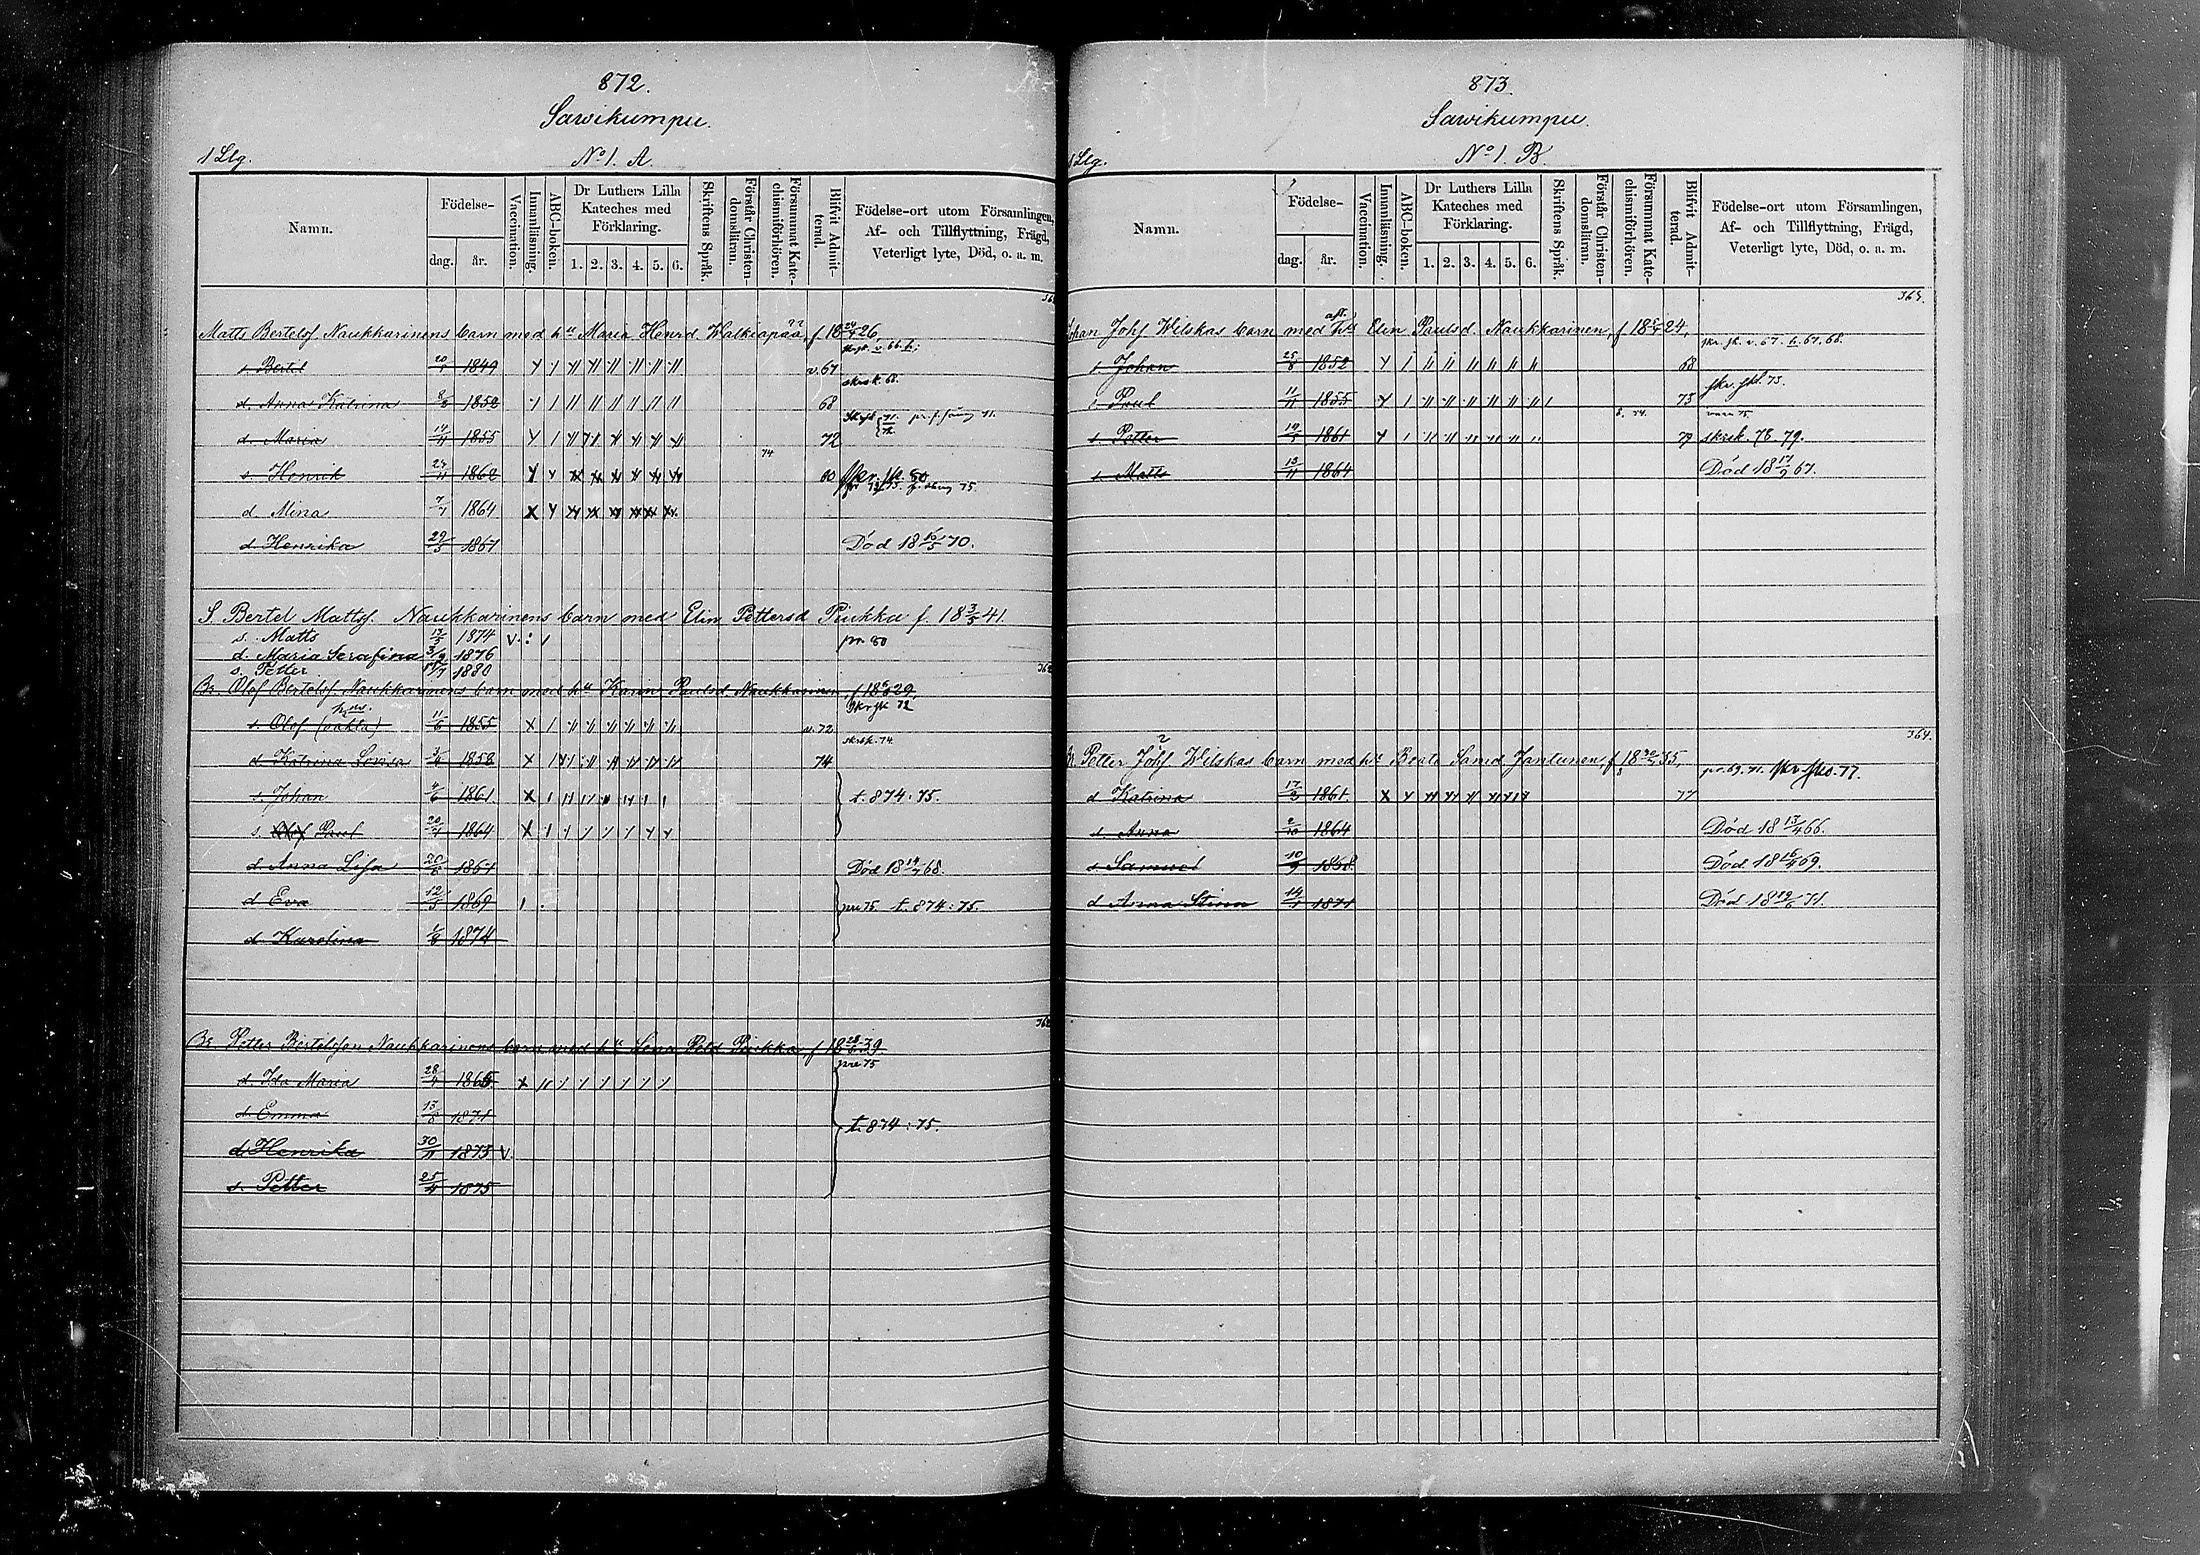 872.
Sawikumpu.
1 Llg.
No 1. A.
Namn.
Födelse-
dag. år.
Vaccination.
Innanläsning.
ABC-boken.
Dr Luthers Lilla Kateches med Förklaring.
1. 2. 3. 4. 5. 6.
Skriftens Språk.
Förstår Christendomslärnn.
Försummat Katechismiförhören.
Blifvit Admitterad.
Födelse-ort utom Församlingen,
Af- och Tillflyttning, Frägd,
Veterligt lyte, Död, o. a. m.
Matts Bertelsf. Naukkarinens barn med hu Maria Henrd Walkiapää, f 18 26,
s. Bertil 1849 v. 67
d. Anna Katrina 8/2 1852 68 skrsk. 68.
d. Maria 14/11 1855 72
74
s. Henrik 24/11 1862 80 Skr. sk. 80
d. Mina 7/1 1864
d. Henrika 29/3 1867 Död 18 16/5 70.
S. Bertel Mattsf. Naukkarinens barn med Elin Pettersd Piukka f. 18 3/5 41.
s. Matts 1874 v. pr. 80
d. Maria Serafina 3/9 1876
s. Petter 1880
Br. Olof Bertelsf. Naukkarinens barn med hu Karin Paulsd Naukkarinen, f 18 29,
s. Olof (vakta) 11/6 1855 v. 72 Skrsk 72
d. Katrina Lovisa 3/4 1858 74 skrsk. 74
s. Johan 4/6 1861 t. 874 : 75.
s. Paul 20/1 1864
d. Anna Lisa 20/6 1867 Död 18 19/7 68.
d. Eva 12/5 1869 pr 75. t. 874 : 75.
d. Karolina 1/8 1874
Br. Petter Bertelsson Naukkarinens barn med hu Lena Petd Piukka, f 18 39
pre 75
d. Ida Maria 28/4 1865
d. Emma 13/8 1871 t. 874 : 75.
d. Henrika 30/11 1873 v.
s. Petter 25/4 1875
873.
Sawikumpu.
1 Llg.
No 1. B.
Namn.
Födelse-
dag. år.
Vaccination.
Innanläsning.
ABC-boken.
Dr Luthers Lilla Kateches med Förklaring.
1. 2. 3. 4. 5. 6.
Skriftens Språk.
Förstår Christendomslärnn.
Försummat Katechismiförhören.
Blifvit Admitterad.
Födelse-ort utom Församlingen,
Af- och Tillflyttning, Frägd,
Veterligt lyte, Död, o. a. m.
Johan Johf Wilskas barn med hu Elin Paulsd. Naukkarinen, f 18 24,
s. Johan 25/8 1852 68
s. Paul 11/11 1855 73 skr. sk. 73.
s. Petter 1861 79 skrsk. 78. 79.
s. Matts 13/11 1864 Död 18 17/9 67.
364.
Br. Petter Johf Wilskas barn med hu Beata Samd Jantunen, f 18 35,
d Katrina 17/3 1861 77 pr. 69. 71. skr. sko. 77.
d. Anna 2/10 1864 Död 18 13/4 66.
s Samuel 10/9 1868 Död 18 69.
d Anna Stina 14/1 1871 Död 18 19/6 71.